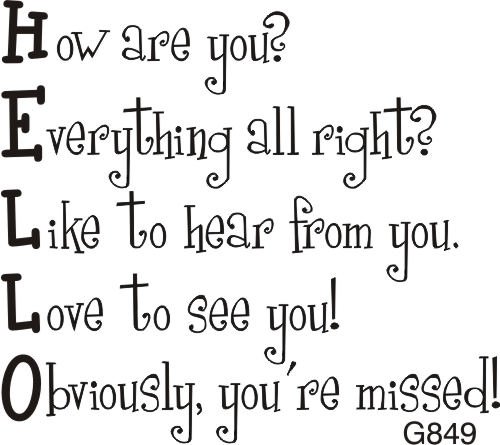 How are you?
Everything all right?
Like to hear from you.
Love to see you!
Obviously, you're missed!
G849